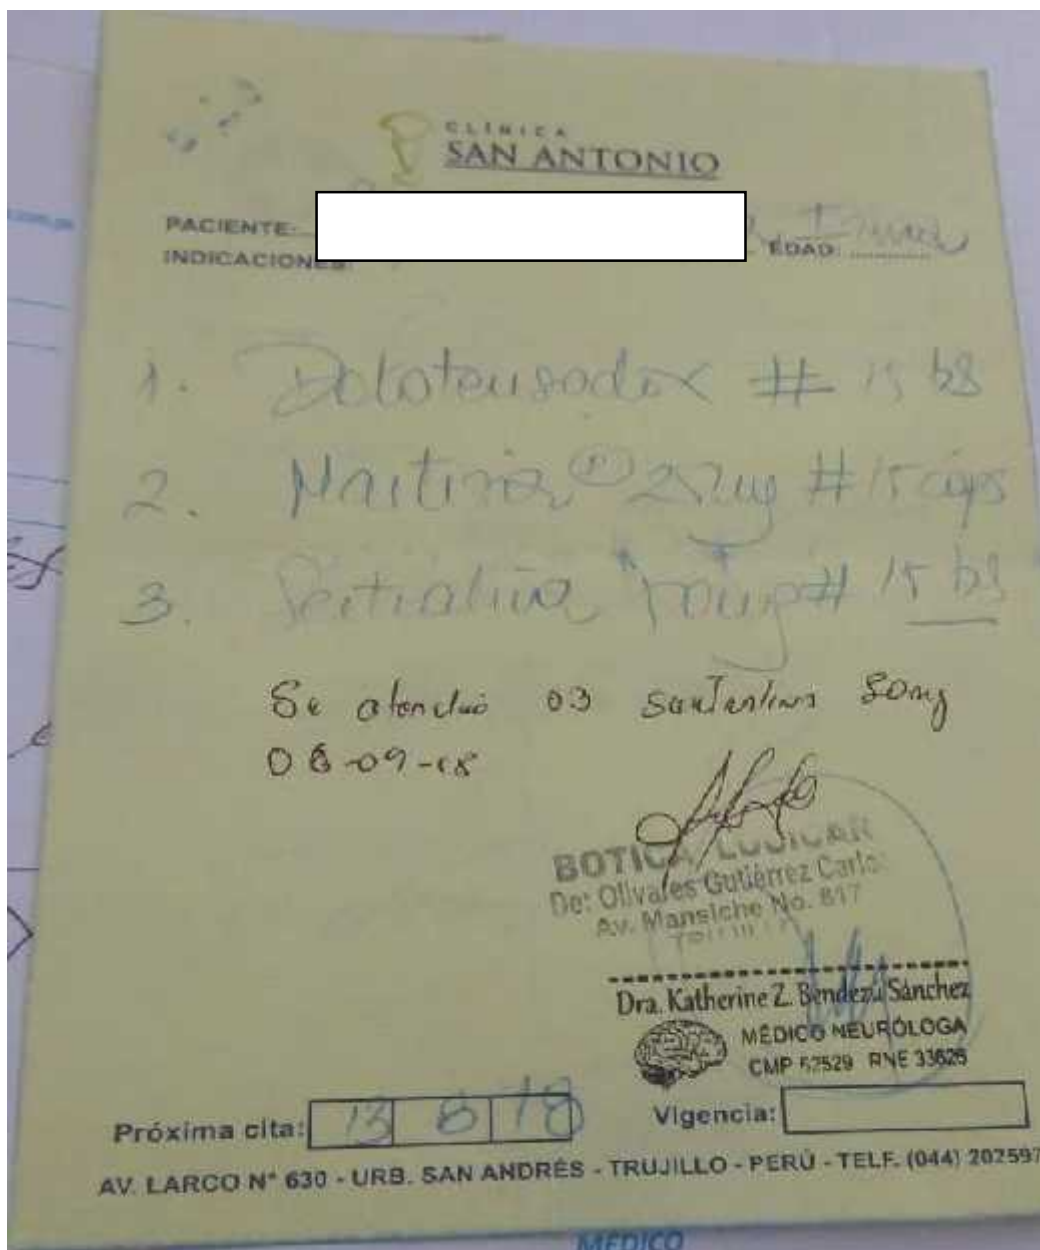 CLÍNICA
SAN ANTONIO
PACIENTE:
EDAD:
INDICACIONES:
1. Dolotensodox # 15 tbs
2. 25mg # 15 cáps
3. Sertralina 50mg # 15 tbs
Se atendió 03 50mg
06-09-18
BOTICA
De: Olivares Gutiérrez Carlos
Av. Mansiche No. 817
Dra. Katherine Z. Bendezú Sánchez
MÉDICO NEURÓLOGA
CMP RNE
Próxima cita: 13 8 18 Vigencia:
AV. LARCO N° 630 - URB. SAN ANDRÉS - TRUJILLO - PERÚ - TELF. (044) 202597
MÉDICO